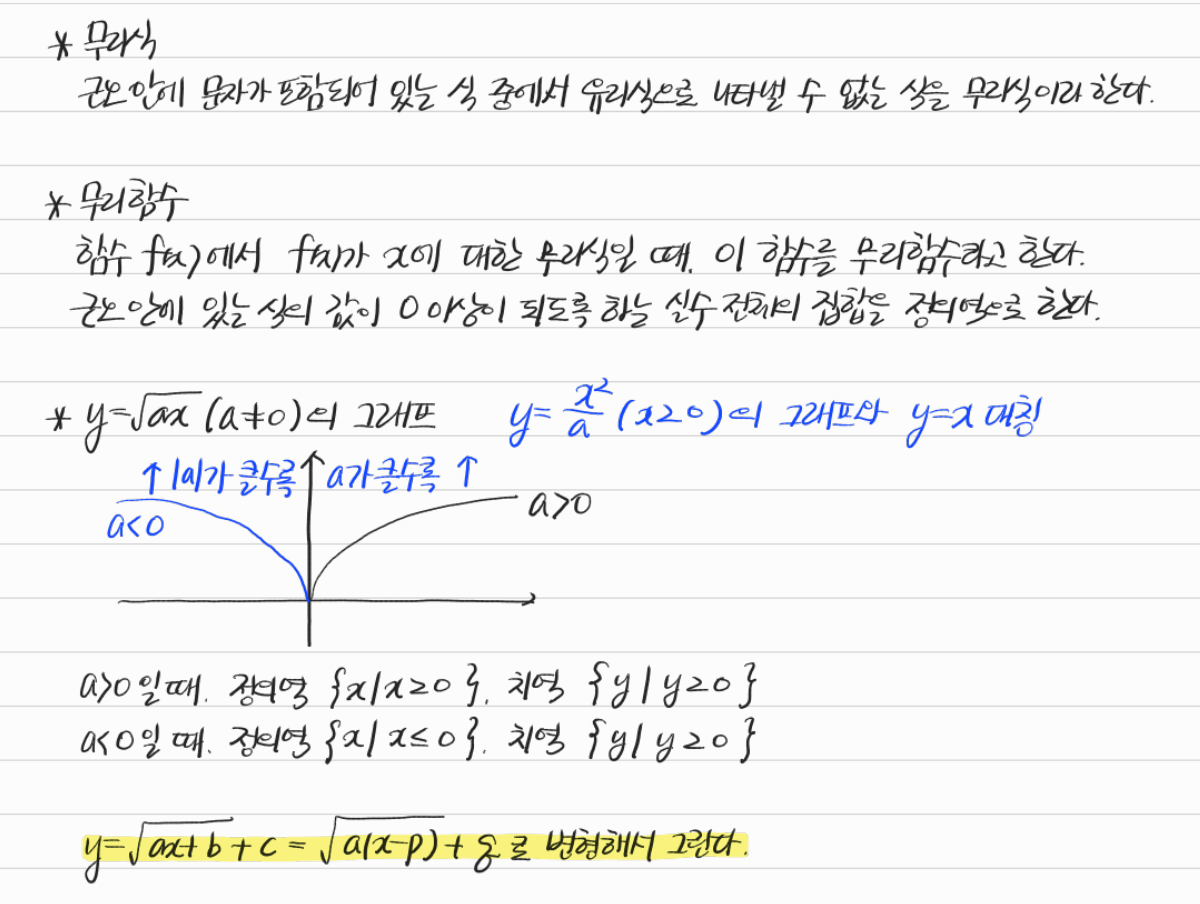 * 무리식
근호 안에 문자가 포함되어 있는 식 중에서 유리식으로 나타낼 수 없는 식을 무리식이라 한다.
* 무리함수
함수 f(x)에서 f(x)가 x에 대한 무리식일 때, 이 함수를 무리함수라고 한다.
근호 안에 있는 식의 값이 0 이상이 되도록 하는 실수 전체의 집합을 정의역으로 한다.
* y=√ax (a≠0)의 그래프 y=x²/a (x≥0)의 그래프와 y=x 대칭
↑ |a|가 클수록 a가 클수록 ↑
a<0 a>0
a>0일 때, 정의역 {x|x≥0}, 치역 {y|y≥0}
a<0일 때, 정의역 {x|x≤0}, 치역 {y|y≥0}
y=√(ax+b)+c = √(a(x-p))+q로 변형해서 그린다.